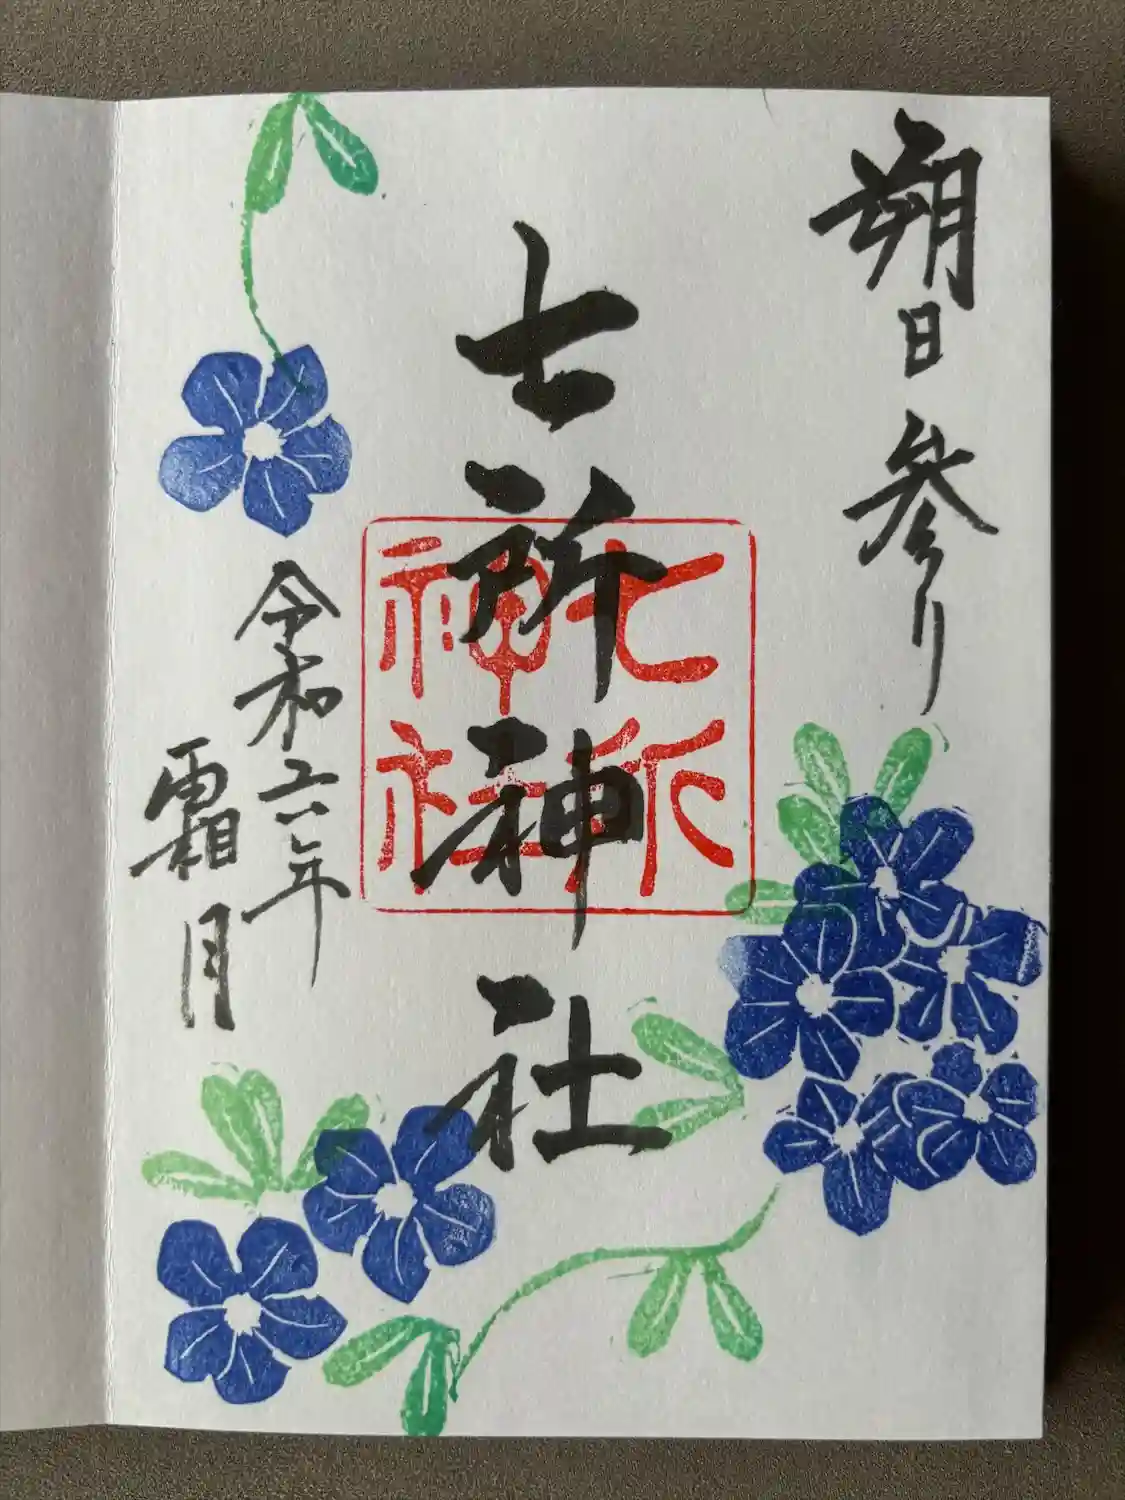 朔日参り
七所神社
七所神社
令和六年
霜月